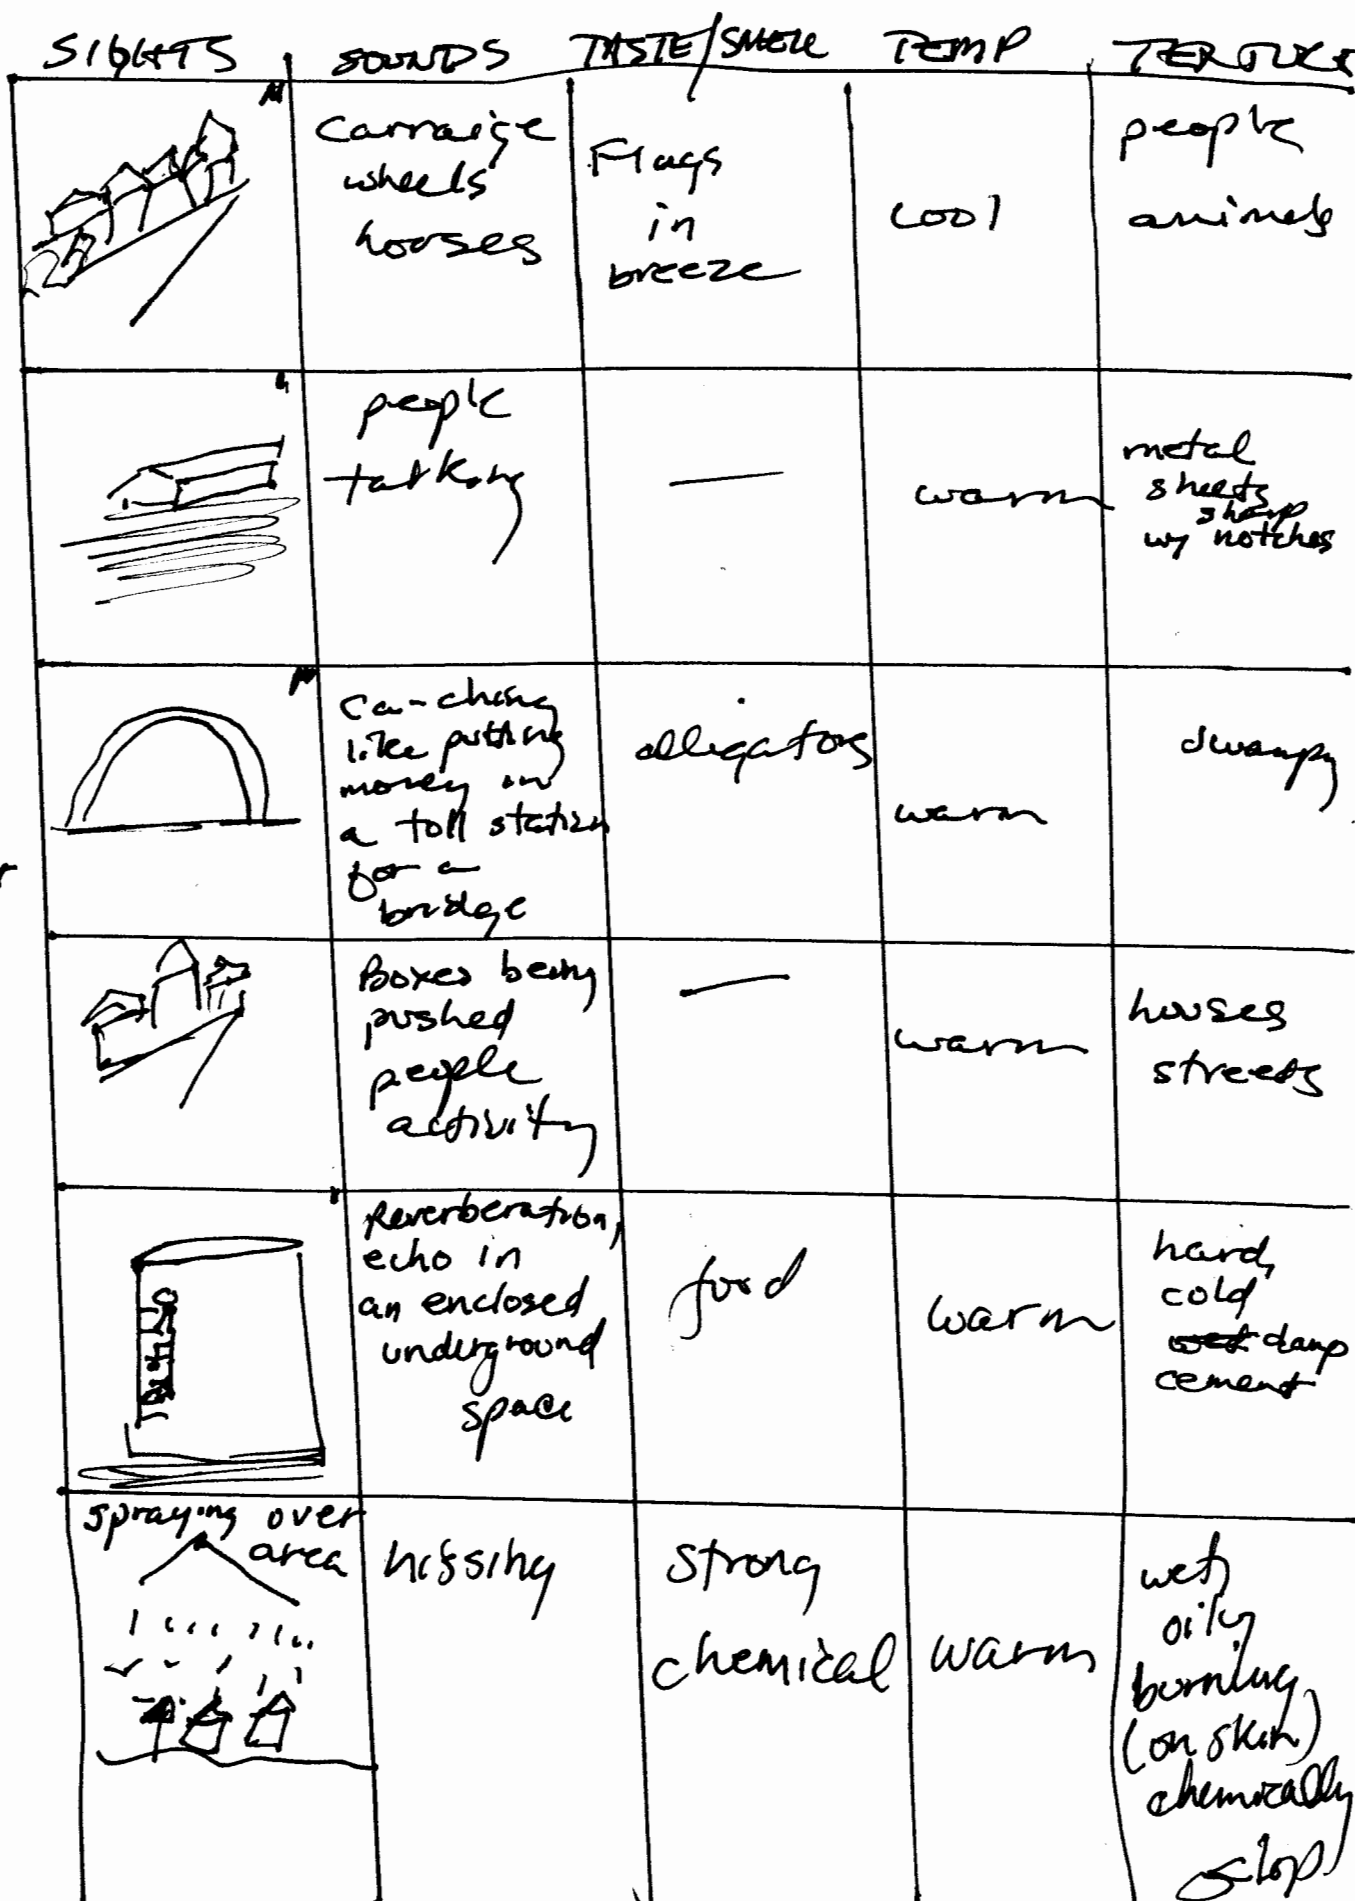 SIGHTS SOUNDS TASTE/SMELL TEMP
Carraige
wheels
Flags
in
breeze
cool
people
animals
people
talking
warm
metal
sheets
sharp
w/ notches
Ca-ching
like putting
money in
a toll station
for a
bridge
alligators
warm
swampy
Boxes being
pushed
people
activity
warm
houses
streets
Reverberation,
echo in
an enclosed
underground
space
food
warm
hard,
cold
wet damp
cement
spraying over
area
hissing
strong
chemical
warm
wet,
oily
burning
(on skin)
chemically